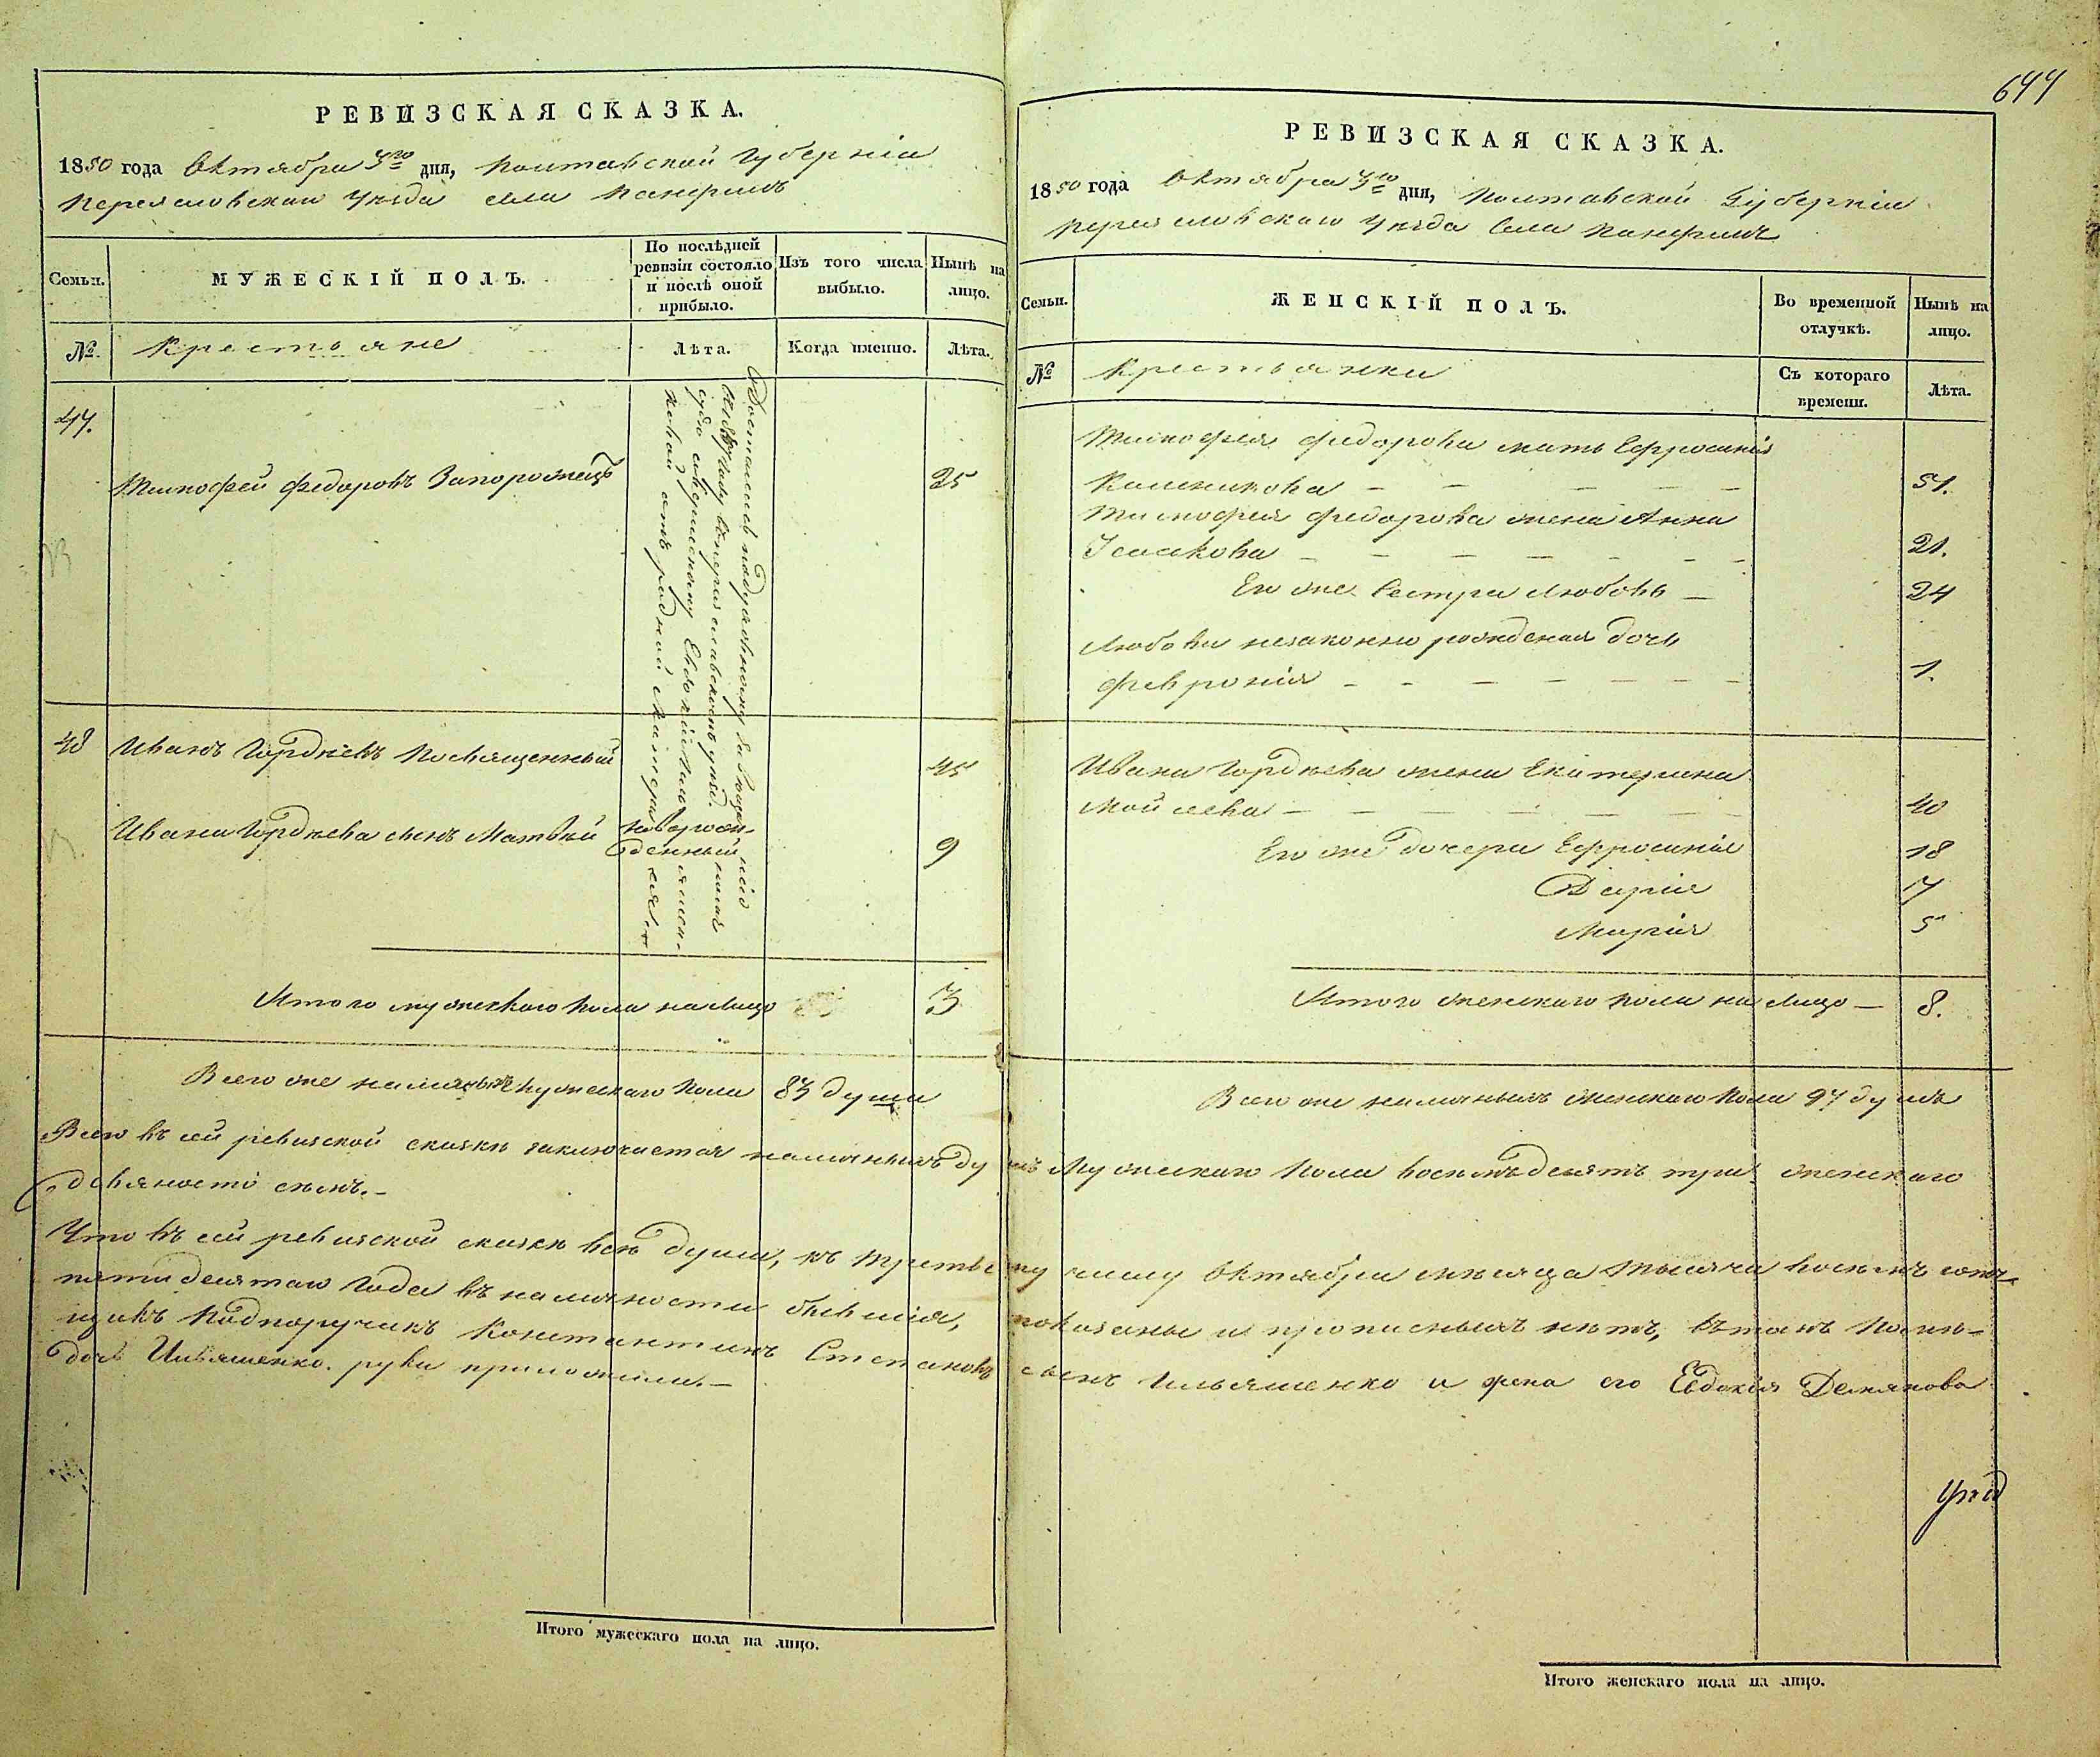 РЕВИЗСКАЯ СКАЗКА.
1850 года Октября 3го дня, Полтавской Губерніи
Переясловскаго Уѣзда села Панфилъ
Семьи.
МУЖЕСКІЙ ПОЛЪ.
По послѣдней
ревизіи состояло
и послѣ оной
прибыло.
Изъ того числа
выбыло.
Нынѣ на
лицо.
№
Крестьяне
Лѣта.
Когда именно.
Лѣта.
47.
Тимофей Федоровъ Запорожецъ
25
48
Иванъ Гордѣевъ Посвященный
45
Ивана Гордѣева сынъ Матвѣй
новорож-
денный
9
Итого мужескаго пола на лицо
3
Всего же наличныхъ мужескаго пола 83 души
Итого мужескаго пола на лицо.
644
РЕВИЗСКАЯ СКАЗКА.
1850 года Октября 3го дня, Полтавской Губерніи
Переясловскаго Уѣзда Села Панфилъ
Семьи.
ЖЕНСКІЙ ПОЛЪ.
Во временной
отлучкѣ.
Нынѣ на
лицо.
№
Крестьянки
Съ котораго
времени.
Лѣта.
Тимофея Федорова мать Ефросинія
Калиникова
51.
Тимофея Федорова жена Анна
Исакова
21.
Его же Сестра Любовь
24
Любови незаконно рожденая дочь
Февронія
1.
Ивана Гордѣева жена Екатерина
Мойсеева
40
Его же дочери Ефросинія
18
Дарія
7
Марія
5
Итого женскаго пола на лицо
8.
Всего же наличныхъ женскаго пола 97 душъ
Всего въ сей ревизской сказкѣ заключается наличныхъ душъ мужескаго пола восемъдесятъ три женскаго
девяносто семь.
Что въ сей ревизской сказкѣ всѣ души, къ третьему числу Октября мѣсяца тысяча восемъ сотъ
пятидесятаго года въ наличности бывшія, показаны и прописныхъ нѣтъ, въ томъ помѣ-
щикъ Подпоручикъ Константинъ Степановъ сынъ Ильяшенко и жена его Евдокія Демянова
дочь Ильяшенко. руки приложили.
Уѣзд
Итого женскаго пола на лицо.